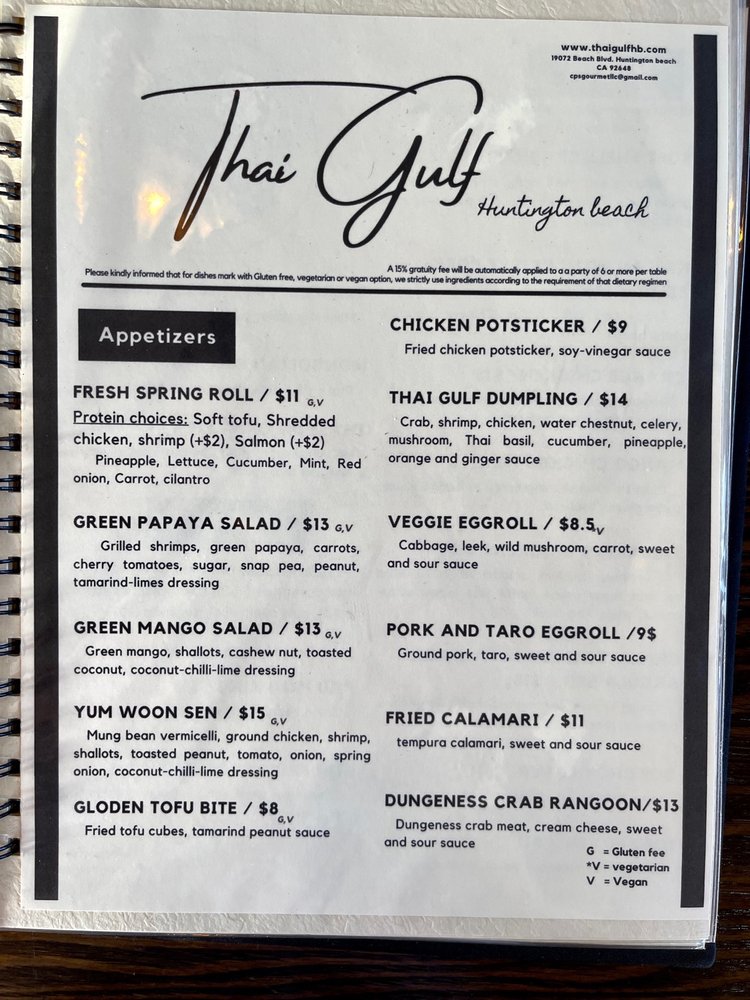 www.thaigulfhb.com
19072 Beach Blvd. Huntington beach
CA 92648
cpsgourmetllc@gmail.com
Thai Gulf
Huntington beach
A 15% gratuity fee will be automatically applied to a a party of 6 or more per table
Please kindly informed that for dishes mark with Gluten free, vegetarian or vegan option, we strictly use ingredients according to the requirement of that dietary regimen
Appetizers
FRESH SPRING ROLL / $11 G,V
Protein choices: Soft tofu, Shredded
chicken, shrimp (+$2), Salmon (+$2)
Pineapple, Lettuce, Cucumber, Mint, Red
onion, Carrot, cilantro
GREEN PAPAYA SALAD / $13 G,V
Grilled shrimps, green papaya, carrots,
cherry tomatoes, sugar, snap pea, peanut,
tamarind-limes dressing
GREEN MANGO SALAD / $13 G,V
Green mango, shallots, cashew nut, toasted
coconut, coconut-chilli-lime dressing
YUM WOON SEN / $15 G,V
Mung bean vermicelli, ground chicken, shrimp,
shallots, toasted peanut, tomato, onion, spring
onion, coconut-chilli-lime dressing
GLODEN TOFU BITE / $8 G,V
Fried tofu cubes, tamarind peanut sauce
CHICKEN POTSTICKER / $9
Fried chicken potsticker, soy-vinegar sauce
THAI GULF DUMPLING / $14
Crab, shrimp, chicken, water chestnut, celery,
mushroom, Thai basil, cucumber, pineapple,
orange and ginger sauce
VEGGIE EGGROLL / $8.5 *V
Cabbage, leek, wild mushroom, carrot, sweet
and sour sauce
PORK AND TARO EGGROLL /9$
Ground pork, taro, sweet and sour sauce
FRIED CALAMARI / $11
tempura calamari, sweet and sour sauce
DUNGENESS CRAB RANGOON/$13
Dungeness crab meat, cream cheese, sweet
and sour sauce
G = Gluten fee
*V = vegetarian
V = Vegan